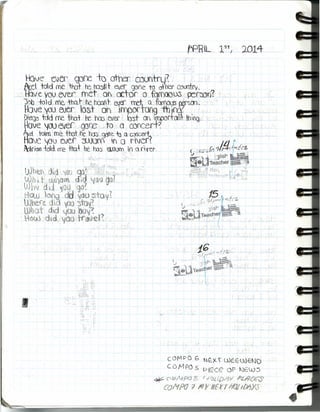 APRIL 1st, 2014
Have ever gone to other country?
Axel told me that he hasn't ever gone to other country.
Have you ever met an actor o famous person?
Job told me that he hasn't ever met a famous person.
Have you ever lost an important thing?
Diego told me that he has ever lost an important thing.
Have you ever gone to a concert?
Axel told me that he has gone to a concert.
Have you ever swum in a river?
Adrian told me that he has swum in a river.
14
When did you go?
did you go?
Why did you go?
How long did you stay?
15
Where did you stay?
Teacher
What did you buy?
How did you travel?
16
Teacher
COMPO 6 NEXT WEEKWEND
COMPO 5 PIECE OF NEWS
HOLIDAY PLACES
COMPO 7 MY NEXT HOLIDAYS